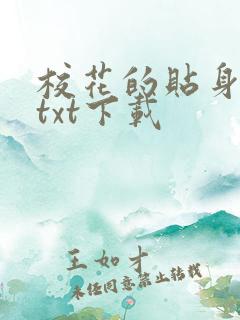 校花的貼身
txt下載
王如才
未经同意禁止转载